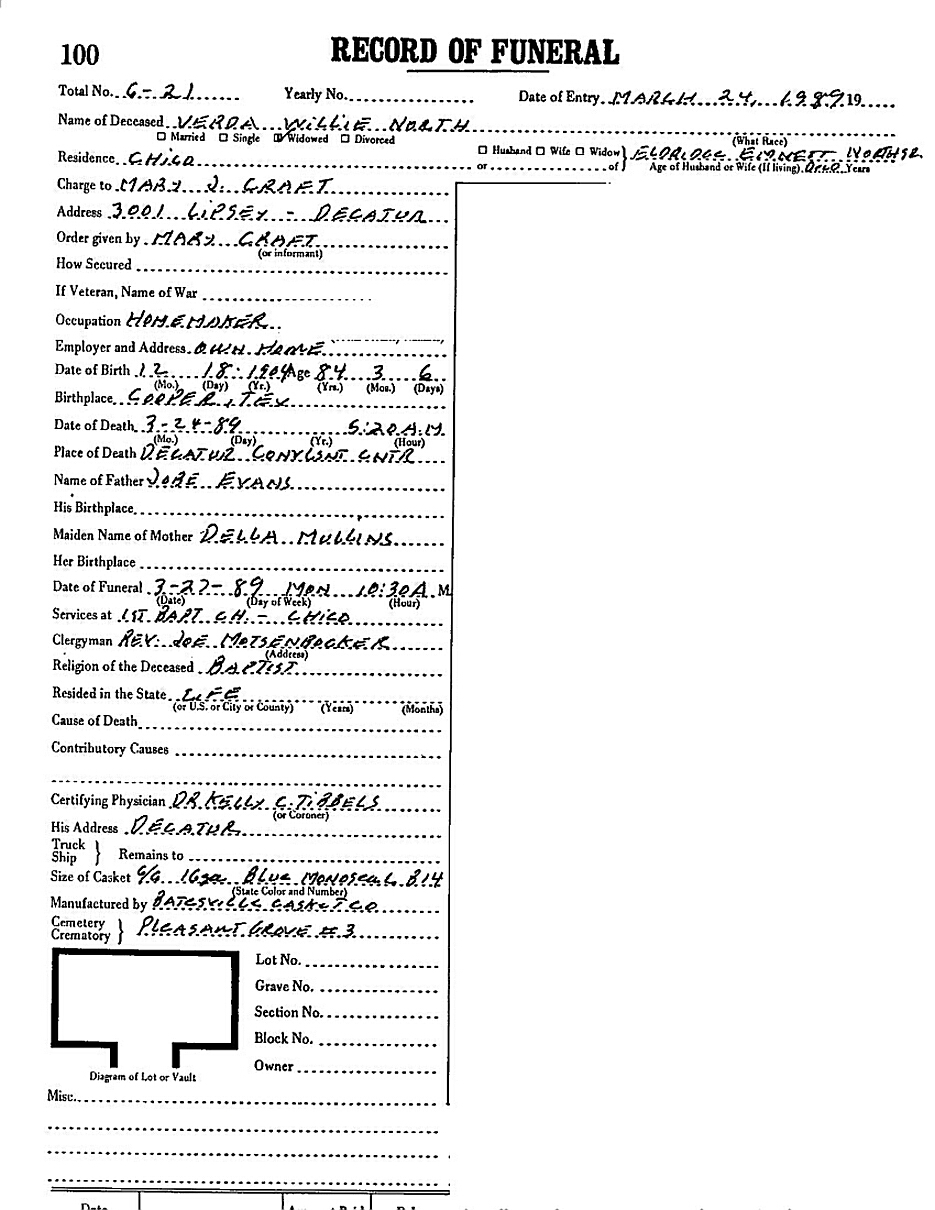 100 RECORD OF FUNERAL
Total No. 6-21 Yearly No. Date of Entry MARCH 24, 1989 19
Name of Deceased VERDA WILLIE NORTH
☐ Married ☐ Single ☑ Widowed ☐ Divorced (What Race)
Residence CHICO ☐ Husband ☐ Wife ☐ Widow } ELDRIDGE EMMETT NORTH SR.
or of Age of Husband or Wife (If living) Years
Charge to MARY J. CRAFT
Address 3001 LIPSEY - DECATUR
Order given by MARY CRAFT
(or informant)
How Secured
If Veteran, Name of War
Occupation HOMEMAKER
Employer and Address OWN HOME
Date of Birth 12 18 1904 Age 84 3 6
(Mo.) (Day) (Yr.) (Yrs.) (Mos.) (Days)
Birthplace COOPER, TEX
Date of Death 3-24-89 5:20 A.M.
(Mo.) (Day) (Yr.) (Hour)
Place of Death DECATUR CONVLSNT CNTR
Name of Father JOBE EVANS
His Birthplace
Maiden Name of Mother DELLA MULLINS
Her Birthplace
Date of Funeral 3-27-89 MON 10:30 A M
(Date) (Day of Week) (Hour)
Services at 1ST. BAPT CH. - CHICO
Clergyman REV. JOE MOTSENBOCKER
(Address)
Religion of the Deceased BAPTIST
Resided in the State LIFE
(or U.S. or City or County) (Years) (Months)
Cause of Death
Contributory Causes
Certifying Physician DR KELLY C. TIBBELS
(or Coroner)
His Address DECATUR
Truck
Ship } Remains to
Size of Casket 6/6 16ga Blue Monoseal B14
(State Color and Number)
Manufactured by BATESVILLE CASKET CO
Cemetery
Crematory } PLEASANT GROVE # 3
Lot No.
Grave No.
Section No.
Block No.
Owner
Diagram of Lot or Vault
Misc.